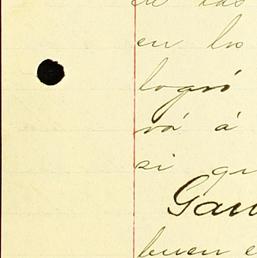 en los
logró
vá á
si qu
Gan
buen e